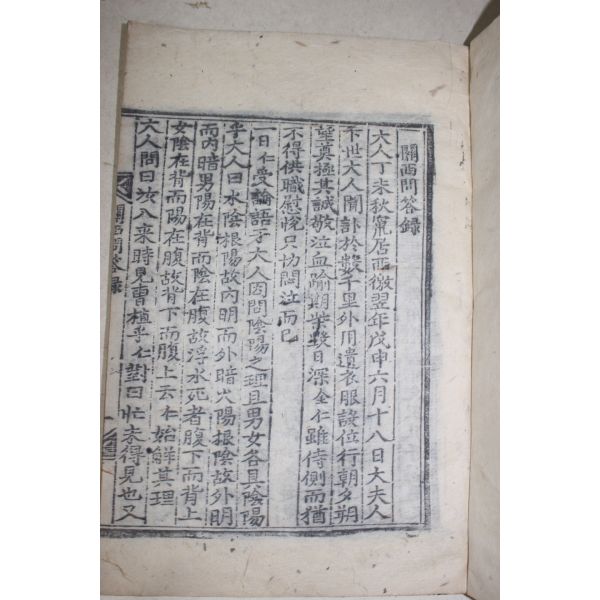 關西問答錄
大人丁未秋竄居西徼翌年戊申六月十八日大夫人
下世大人聞訃於數千里外用遺衣服設位行朝夕朔
望奠極其誠敬泣血踰期柴毀日深全仁雖侍側而猶
不得供職慰悅只切悶泣而已
一日仁受論語于大人因問陰陽之理且男女各具陰陽
乎大人曰水陰根陽故內明而外暗火陽根陰故外明
而內暗男陽在背而陰在腹故浮水死者腹下而背上
女陰在背而陽在腹故背下而腹上云仁始解其理
大人問曰汝入來時見曹植乎仁對曰忙未得見也又
關西問答錄